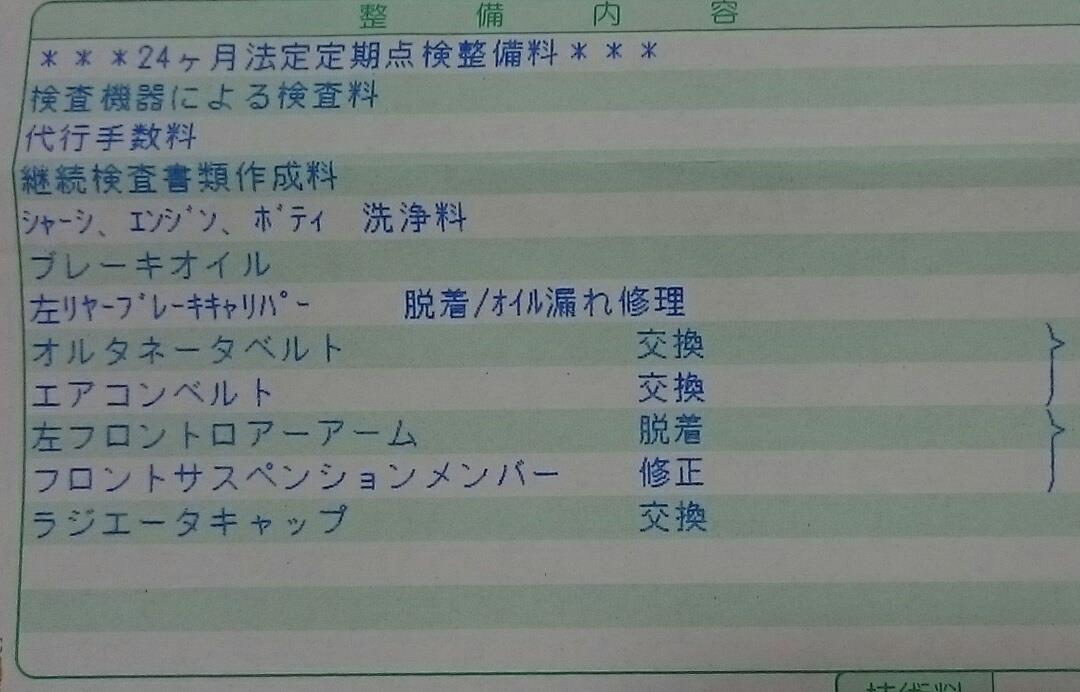 整備内容
＊＊＊24ヶ月法定定期点検整備料＊＊＊
検査機器による検査料
代行手数料
継続検査書類作成料
ｼｬｰｼ、ｴﾝｼﾞﾝ、ﾎﾞﾃｨ 洗浄料
ブレーキオイル
左ﾘﾔｰﾌﾞﾚｰｷｷｬﾘﾊﾟｰ 脱着/ｵｲﾙ漏れ修理
オルタネータベルト 交換
エアコンベルト 交換
左フロントロアーアーム 脱着
フロントサスペンションメンバー 修正
ラジエータキャップ 交換
技術料